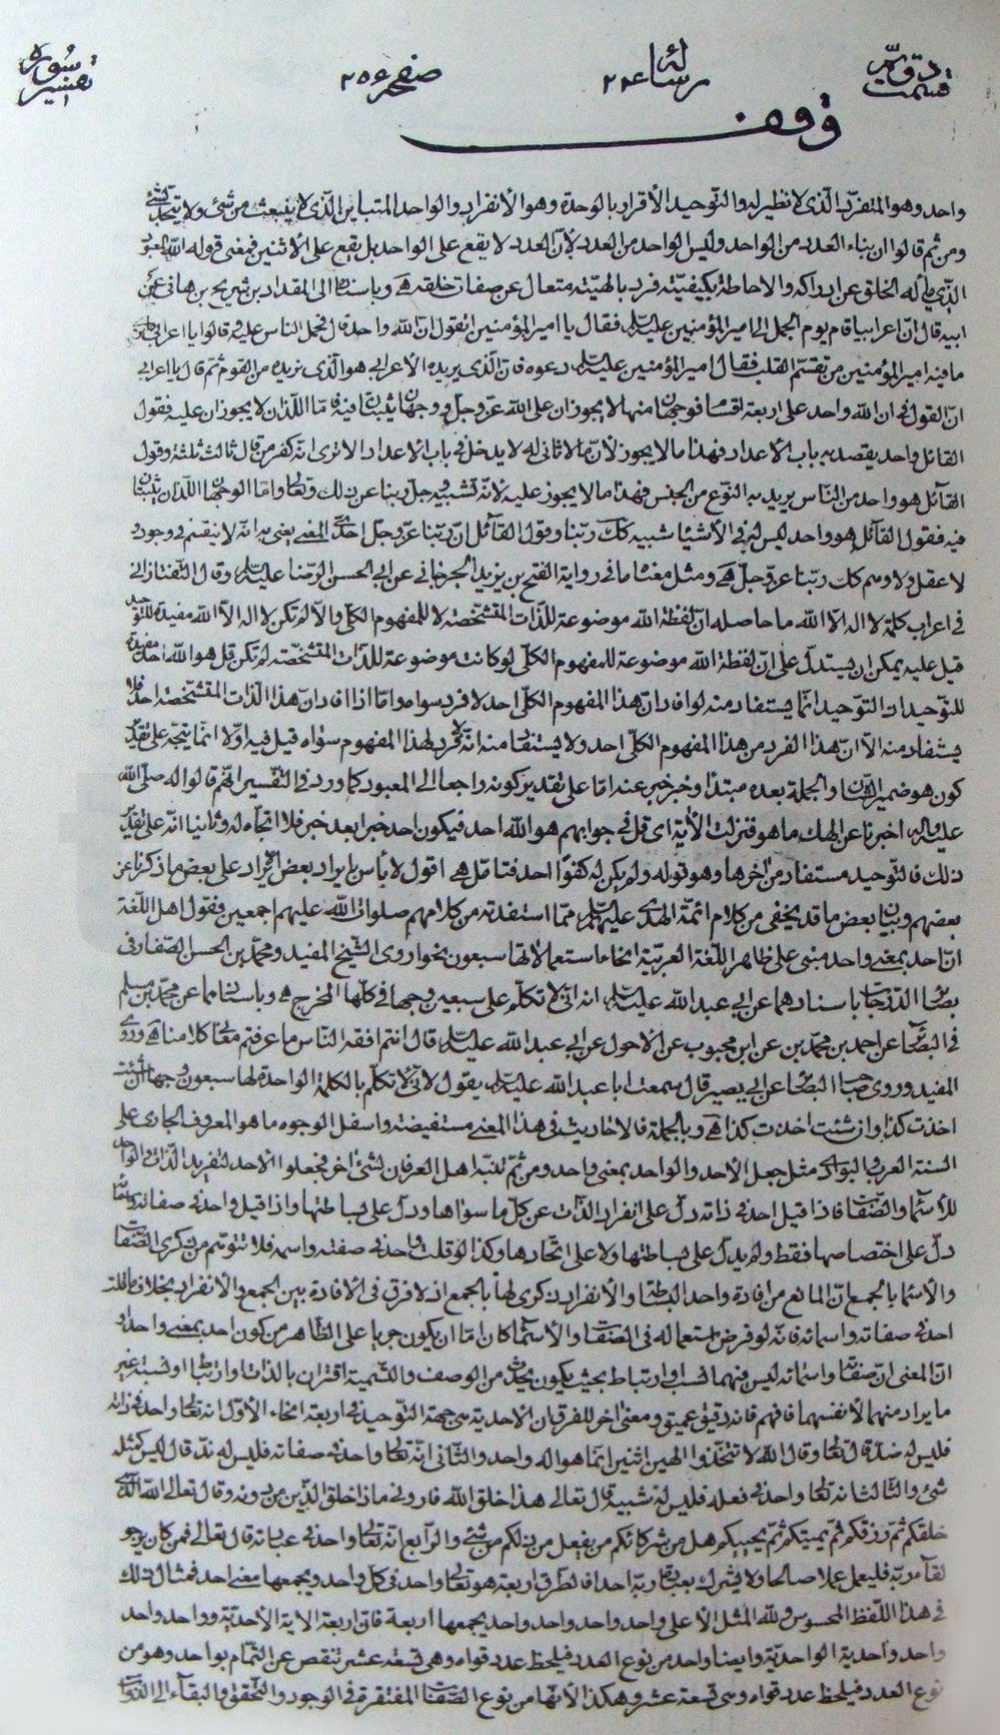 قسمت دویم رسالة ٢٤ صفحه ٢٥٦ تفسیر سوره
وقف
واحد وهو المتفرد الذى لا نظير له والتوحيد الأقرار بالوحدة وهو الأنفراد والواحد المتباين الذى لا ينبعث من شئ ولا يتحد بشئ
ومن ثم قالوا ان بناء العدد من الواحد وليس الواحد من العدد لأن العدد لا يقع على الواحد بل يقع على الاثنين فمعنى قوله الله المعبود
الذى يأله الخلق عن ادراكه والاحاطة بكيفيته فرد بالهيته متعال عن صفات خلقه هـ وباسناده الى المقداد بن شريح بن هانى عن
ابيه قال ان اعرابيا قام يوم الجمل الى امير المؤمنين عليه السلام فقال يا امير المؤمنين اتقول ان الله واحد قال فحمل الناس عليه قالوا يا اعرابى اما ترى
ما فيه امير المؤمنين من تقسم القلب فقال امير المؤمنين عليه السلام دعوه فان الذى يريده الاعرابى هو الذى نريده من القوم ثم قال يا اعرابى
ان القول فى ان الله واحد على اربعة اقسام فوجهان منها لا يجوزان على الله عز وجل ووجهان يثبتان فيه فاما اللذان لا يجوزان عليه فقول
القائل واحد يقصد به باب الأعداد فهذا ما لا يجوز لأن ما لا ثانى له لا يدخل فى باب الاعداد الا ترى انه كفر من قال ثالث ثلثة وقول
القائل هو واحد من الناس يريد به النوع من الجنس فهذا ما لا يجوز عليه لانه تشبيه وجل ربنا عن ذلك وتعالى واما الوجهان اللذان يثبتان
فيه فقول القائل هو واحد ليس له فى الأشياء شبيه كك ربنا وقول القائل ان ربنا عز وجل احدى المعنى يعنى به انه لا ينقسم فى وجود و
لا عقل ولا وهم كك ربنا عز وجل هـ ومثل معناه ما فى رواية الفتح بن يزيد الجرجانى عن ابى الحسن الرضا عليه السلام وقال التفتازانى
فى اعراب كلمة لا اله الا الله ما حاصله ان لفظة الله موضوعة للذات المشخصة لا للمفهوم الكلى والا لم تكن لا اله الا الله مفيدة للتوحيد
قيل عليه يمكن ان يستدل على ان لفظة الله موضوعة للمفهوم الكلى لو كانت موضوعة للذات المشخصة لم تكن قل هو الله احد مفيدة
للتوحيد لان التوحيد انما يستفاد منه لو افاد ان هذا المفهوم الكلى احد لا فرد سواه واما اذا افاد ان هذا الذات المشخصة احد فلا
يستفاد منه الا ان هذا الفرد من هذا المفهوم الكلى احد ولا يستفاد منه انه لا فرد لهذا المفهوم سواه قيل فيه اولا انما يتجه على تقدير
كون هو ضمير الشان والجملة بعده مبتدأ وخبر خبر عنه اما على تقدير كونه راجعا الى المعبود كما ورد فى التفسير انهم قالوا له صلى الله
عليه واله اخبرنا عن الهك ما هو فنزلت الآية اى قل فى جوابهم هو الله احد فيكون احد خبرا بعد خبر فلا اتجاه له وثانيا انه على تقدير
ذلك فالتوحيد مستفاد من اخرها وهو قوله ولم يكن له كفوا احد فتامل هـ اقول لا بأس بايراد بعض الايراد على بعض ما ذكرنا عن
بعضهم وبيان بعض ما قد يخفى من كلام ائمة الهدى عليهم السلام مما استفدته من كلامهم صلوات الله عليهم اجمعين فقول اهل اللغة
ان احد بمعنى واحد مبنى على ظاهر اللغة العربية انحاء استعمالاتها سبعون نحوا روى الشيخ المفيد ومحمد بن الحسن الصفار فى
بصائر الدرجات باسنادهما عن ابى عبد الله عليه السلام انه انى لا تكلم على سبعين وجها فى كلها المخرج هـ وباسنادهما عن محمد بن مسلم
فى البصائر عن احمد بن محمد بن عن ابن محبوب عن الاحول عن ابى عبد الله عليه السلام قال انتم افقه الناس ما عرفتم معانى كلامنا هـ وروى
المفيد وروى صاحب البصائر عن ابى بصير قال سمعت ابا عبد الله عليه السلام يقول لانى لا تكلم بالكلمة الواحدة لها سبعون وجها ان شئت
اخذت كذا وان شئت اخذت كذا هـ وبالجملة فالاحاديث فى هذا المعنى مستفيضة واسفل الوجوه ما هو المعروف الجارى على
السنة العرب والبوادى مثل جعل الأحد والواحد بمعنى واحد ومن ثم تنبه اهل العرفان لشئ اخر فجعلوا الأحد لتفريد الذات والواحد
للأسماء والصفات فاذا قيل احد فى ذاته دل على انفراد الذات عن كل ما سواها ودل على بساطتها واذا قيل واحد فى صفاته واسمائه
دل على اختصاصها فقط ولم يدل على بساطتها ولا على اتحادها وكذا لو قلت واحد فى صفته واسمه فلا تتوهم من ذكرى الصفات
والأسماء بالجمع ان المانع من افادة واحد البساطة والأنفراد ذكرى لها بالجمع اذ لا فرق فى الافادة بين الجمع والأنفراد بخلاف ما قلت
احد فى صفاته واسمائه فانه لو فرض استعماله فى الصفات والأسماء كان اما ان يكون جريا على الظاهر من كون احد بمعنى واحد او
ان المعنى ان صفاته واسمائه ليس فيهما انتساب وارتباط بحيث يكون يحدث من الوصف والتسمية اقتران بالذات وارتباط او نسبة غير
ما يراد منهما لأنفسهما فافهم فانه دقيق عميق ومعنى اخر للفرق ان الاحدية هى جهة التوحيد فى اربعة انحاء الأول انه تعالى واحد فى ذاته
فليس له ضد قال تعالى وقال الله لا تتخذوا الهين اثنين انما هو اله واحد والثانى انه تعالى واحد فى صفاته فليس له ند قال ليس كمثله
شئ والثالث انه تعالى واحد فى فعله فليس له شبيه قال تعالى هذا خلق الله فارونى ماذا خلق الذين من دونه وقال تعالى الله الذى
خلقكم ثم رزقكم ثم يميتكم ثم يحييكم هل من شركائكم من يفعل من ذلكم من شئ والرابع انه تعالى واحد فى عبادته قال تعالى فمن كان يرجو
لقاء ربه فليعمل عملا صالحا ولا يشرك بعبادة ربه احدا فلطرق اربعة هو تعالى واحد فى كل واحد ويجمعها معنى احد فمثال ذلك
فى هذا اللفظ المحسوس ولله المثل الأعلى واحد واحد واحد واحد يجمعها اربعة فان اربعة الاية الأحدية وواحد واحد
واحد واحد اية الواحدية وايضا واحد من نوع العدد فيلحظ عدد قواه وهى تسعة عشر تنقص عن التمام بواحد وهو من
نوع العدد فيلحظ عدد قواه وهى تسعة عشر وهكذا لأنها من نوع الصفات المفتقرة فى الوجود والتحقق والبقاء الى الذوات